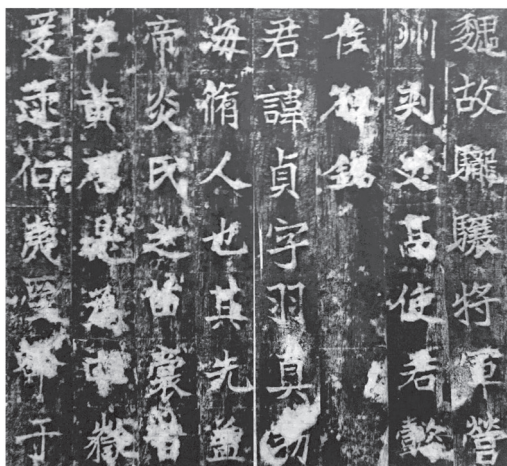 魏故龍驤將軍營
州刺史高使君懿
侯碑銘
君諱貞字羽真勃
海脩人也其先蓋
帝炎氏之苗裔昔
在黃唐是為四嶽
爰逮伯夷受命于